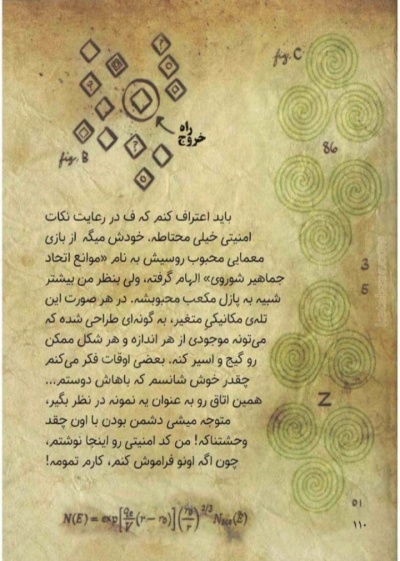 fig. C
راه
خروج
fig. B
86
باید اعتراف کنم که ف در رعایت نکات
امنیتی خیلی محتاطه. خودش میگه از بازی
معمایی محبوب روسیش به نام «موانع اتحاد
جماهیر شوروی» الهام گرفته، ولی بنظر من بیشتر
شبیه به پازل مکعب محبوبشه. در هر صورت این
تله‌ی مکانیکیِ متغیر، به گونه‌ای طراحی شده که
می‌تونه موجودی از هر اندازه و هر شکل ممکن
رو گیج و اسیر کنه. بعضی اوقات فکر می‌کنم
چقدر خوش شانسم که باهاش دوستم...
همین اتاق رو به عنوان یه نمونه در نظر بگیر،
متوجه میشی دشمن بودن با اون چقد
وحشتناکه! من کد امنیتی رو اینجا نوشتم،
چون اگه اونو فراموش کنم، کارم تمومه!
3
5
Z
01
۱۱۰